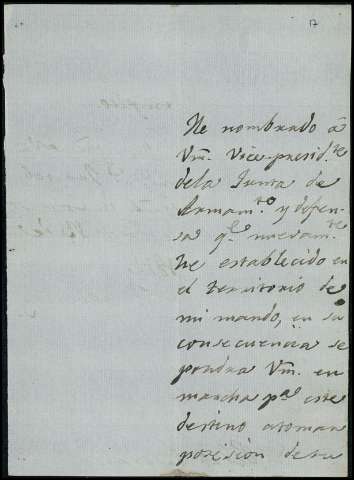 17
He nombrado á
Vm. Vice-presid.te
dela Junta de
Armam.to y defen-
sa q.e nuevam.te
he establecido en
el territorio de
mi mando, en su
consecuencia se
pondra Vm. en
marcha p.a este
destino atomar
posesion de su